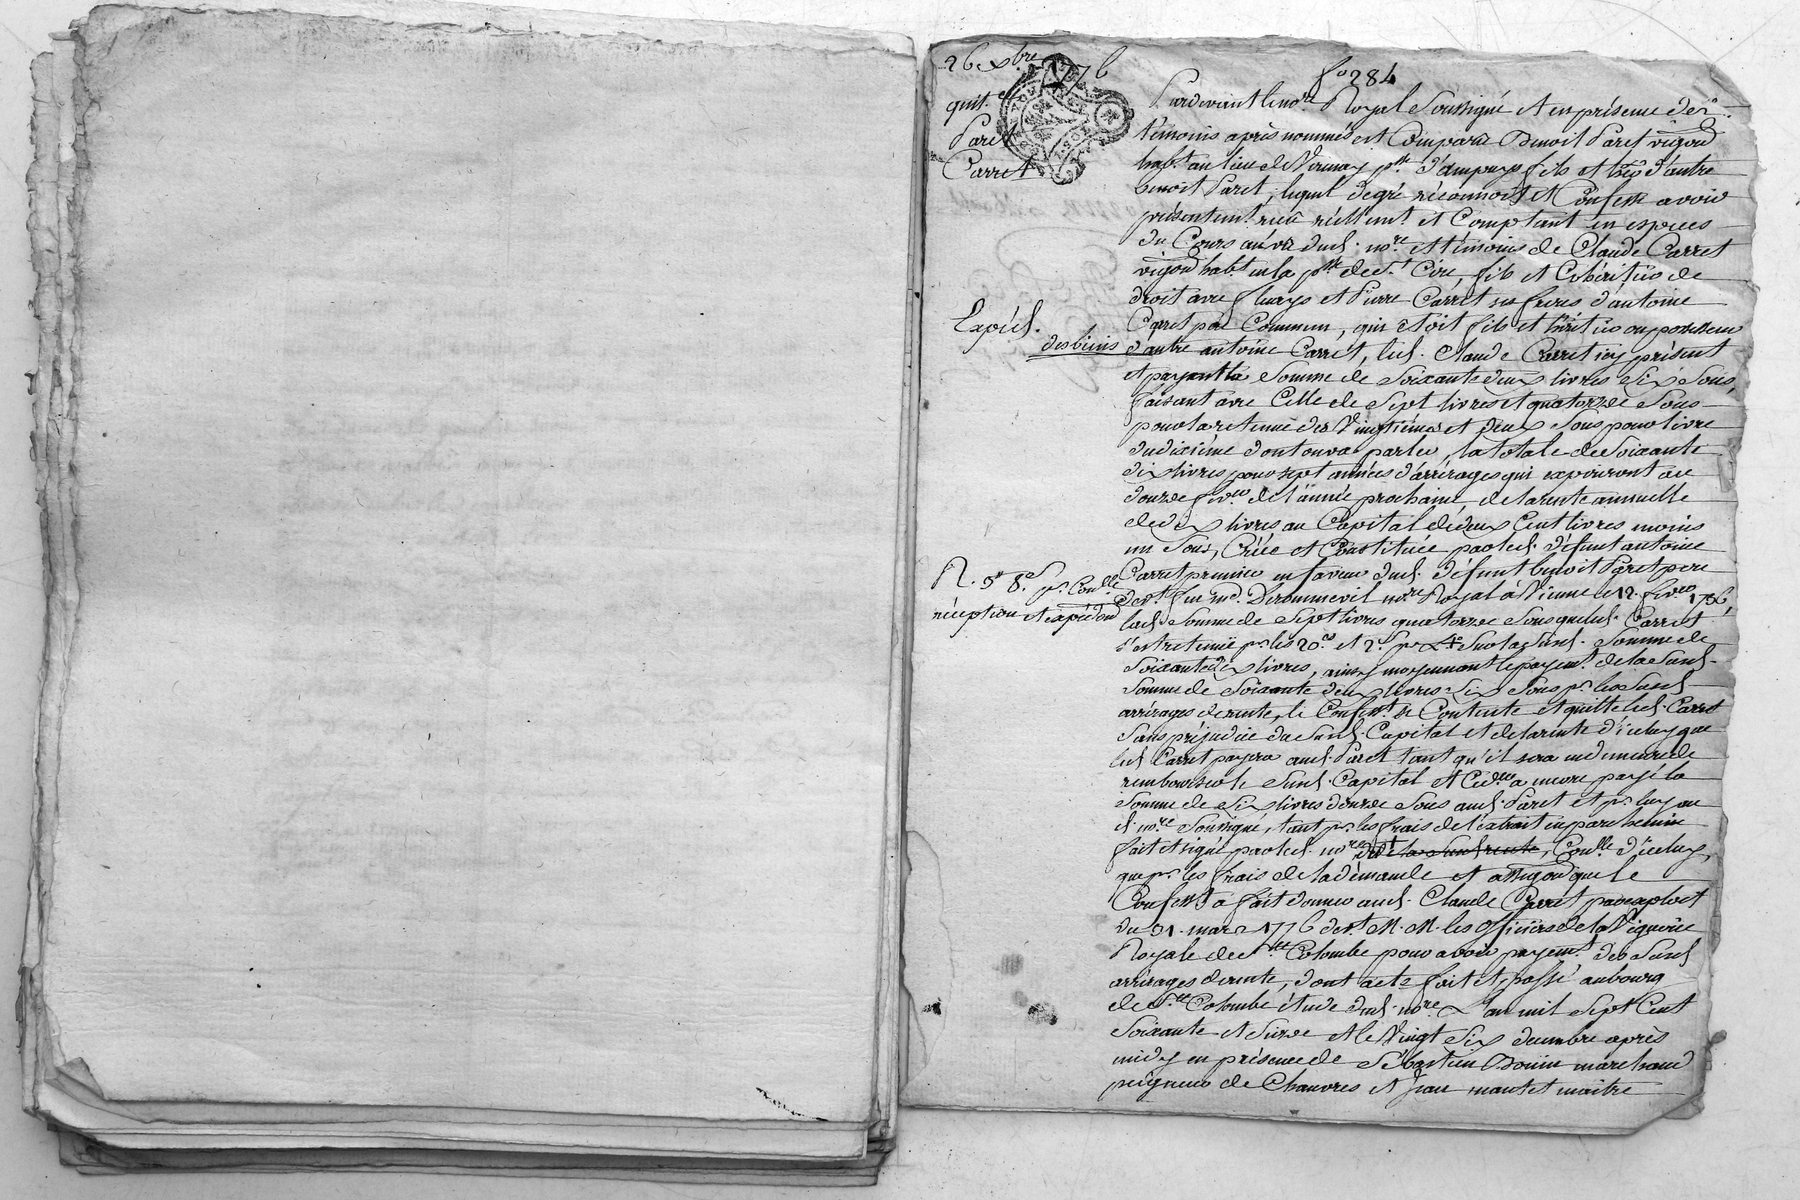 26 xbre 1776
quit.ce
Paret
Carret
fo 284
Pardevant le nore Royal Soussigné et en présence des
témoins après nommés est Comparu Benoit Paret vigon
habt au lieu de Verenay psse d'ampuys fils et d'autre
benoit Paret, lequel de gré reconnoit et Confesse avoir
présentemt reçu réellemt et Comptant en espèces
du Cours au vû dud. nore et témoins de Claude Carret
vigon habt en la psse de St Cire, fils et Cohéritier de
droit avec fleurys et Pierre Carret ses freres d'antoine
Expéd.
Carret pere Commun, qui étoit fils et héritier ou possesseur
des biens
d'autre antoine Carret, led. Claude Carret icy présent
et payant la Somme de Soixante deux livres Six Sous,
faisant avec Celle de Sept livres et quatorze Sous
pour la retenue des Vingtiemes et deux Sous pour livre
du dixième dont on va parler, la totale de Soixante
dix livres pour sept années d'arrérages qui expireront au
douze fevr de l'année prochaine, de la rente annuelle
de dix livres au Capital de deux Cent livres moins
un Sous, Créée et Constituée par led. défunt antoine
Carret premier en faveur dud. défunt benoit Paret pere
R. 3# 8s pr Conlle
réception et expéd on
devt feu me. Derommevil nore Royal à Vienne le 12 fevr 1756,
lad. Somme de Sept livres quatorze Sous que led. Carret
s'est retenuë pr les 20es et 2s pr # Sur lad Susd. Somme de
Soixante dix livres, ainsy moyennant le payemt de la Susd.
Somme de Soixante deux livres Six Sous pr les Susd
arrérages de rente, le Confesst se Contente et quitte led. Carret
Sans préjudice du Susd. Capital et de la rente d'iceluy que
led Carret payera aud. Paret tant qu'il sera en demeure de
rembourser le Susd. Capital et a encore payé la
Somme de Six livres douze Sous aud. Paret et pr luy au
d. nore Soussigné, tant pr les frais de l'extrait en parchemin
fait et signé par led. nore de la Susd. rente, Conlle d'iceluy,
que pr les frais de la demande et assignon que le
Confesst a fait donner aud. Claude Carret par exploit
du 31 mars 1776 devt M. M. les Officiers de la Viguerie
Royale de Ste Colombe pour avoir payemt des Susd
arrérages de rente, dont acte fait et passé au bourg
de Ste Colombe étude dud. nore L'an mil Sept Cent
Soixante et Seize et le Vingt Six decembre après
midy en présence de Sébastien Bonin marchand
peigneur de Chanvres et Jean mantet maitre